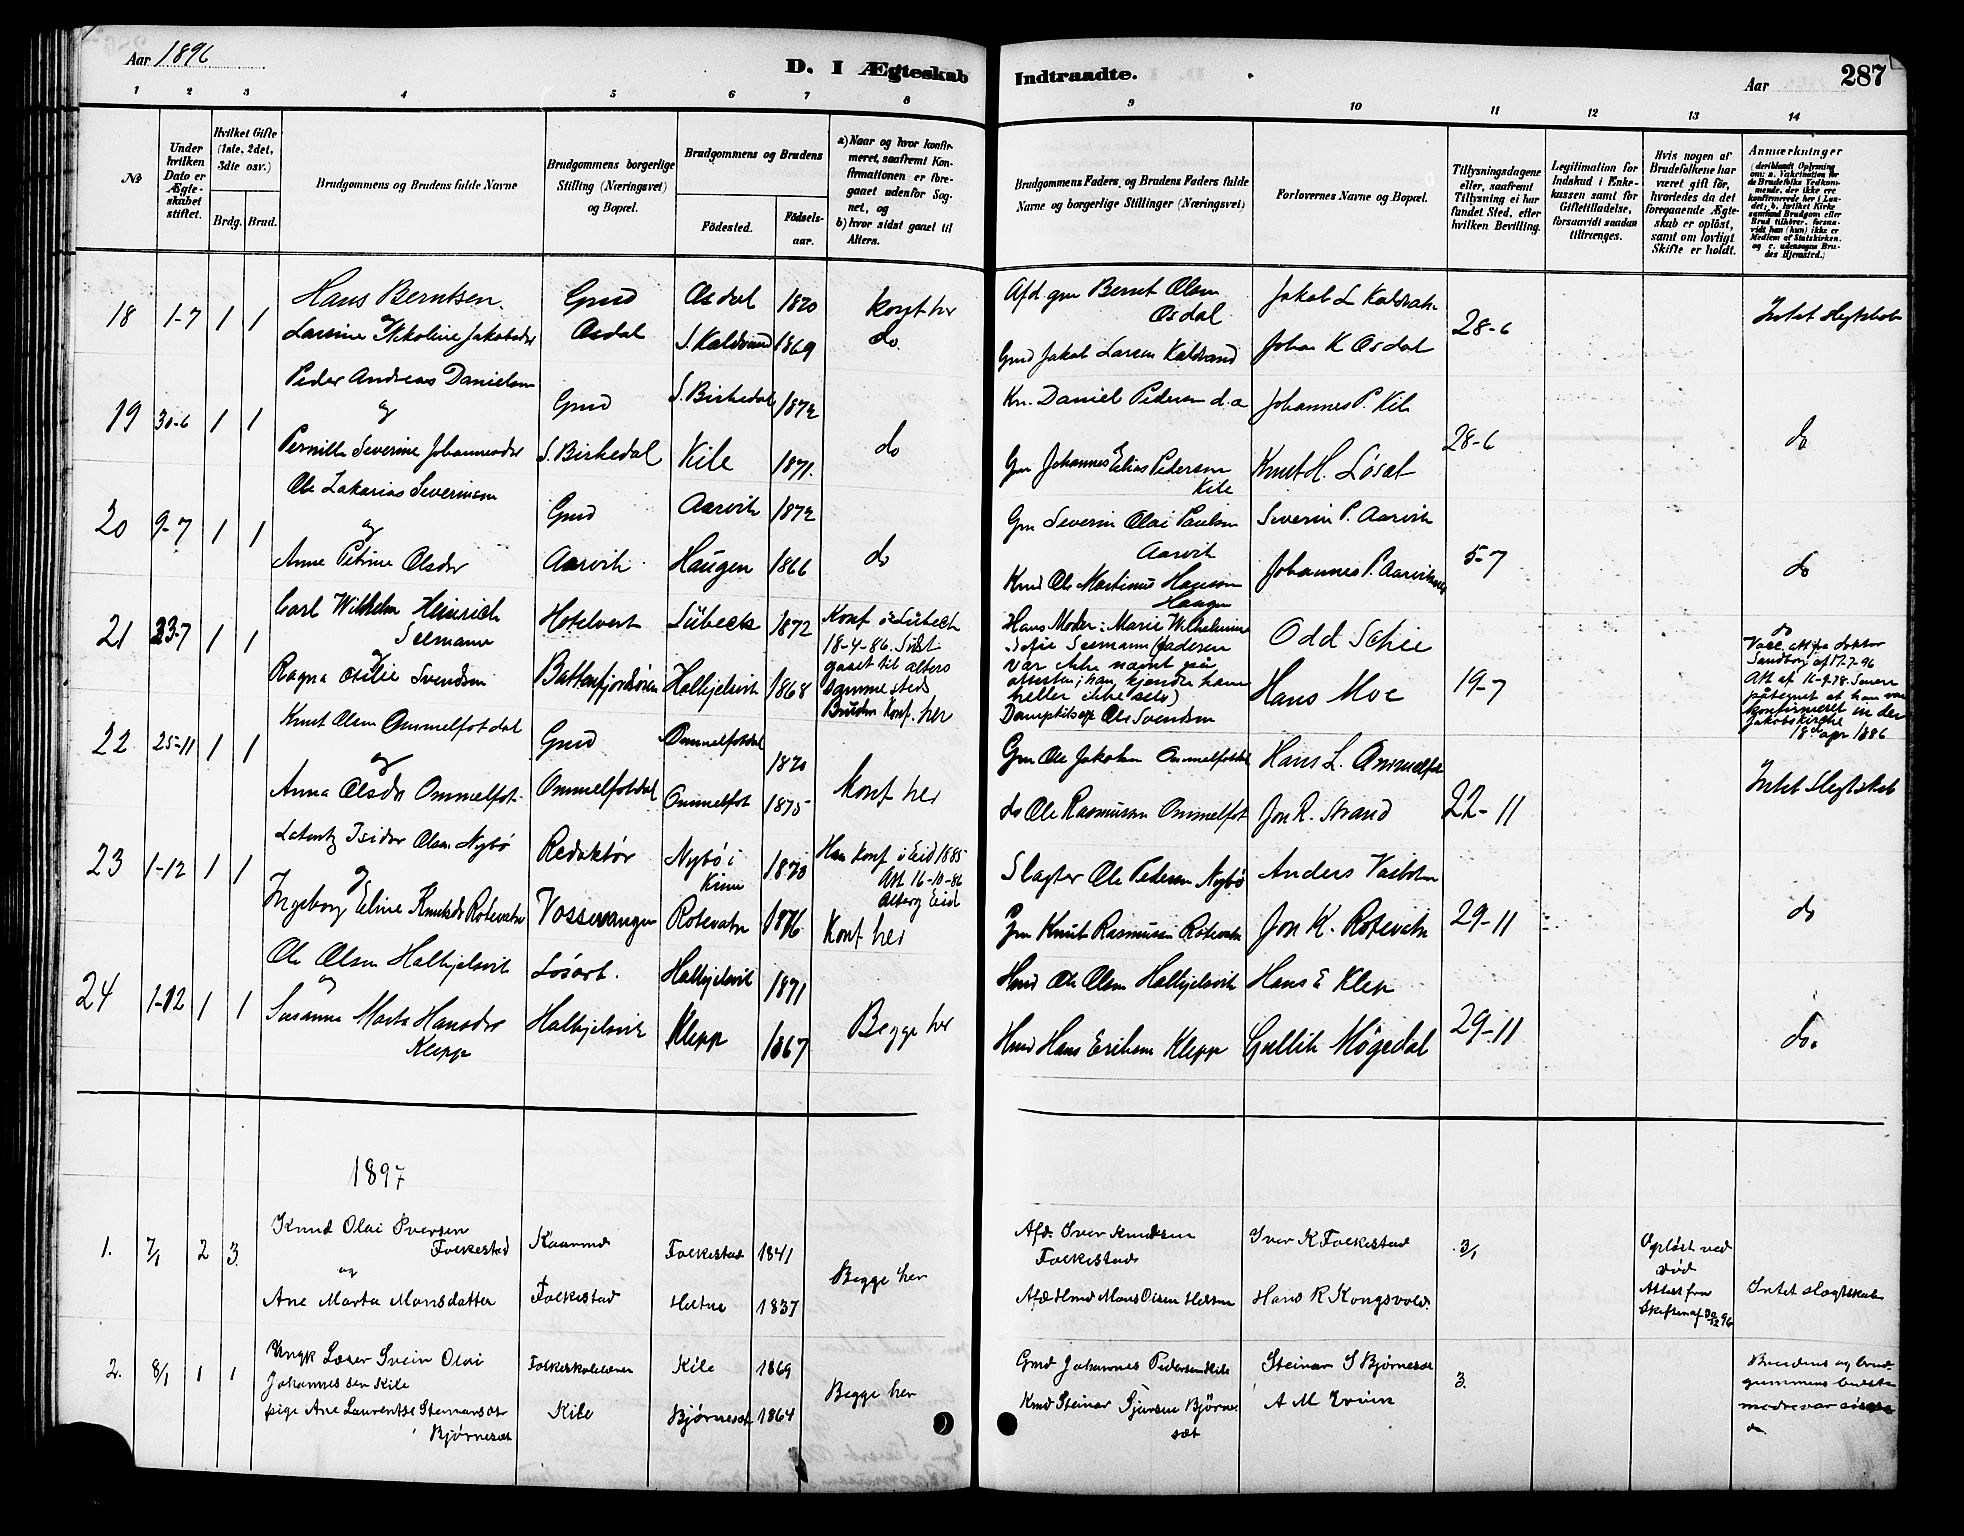 Aar 1896
D. I Ægteskab
Indtraadte.
Aar
287
1
2
3
4
5
6
7
8
9
10
11
12
13
14
№
Under
hvilken
Dato er
Ægte-
skabet
stiftet.
Hvilket Gifte
(1ste, 2det,
3die osv.)
Brdg.
Brud.
Brudgommens og Brudens fulde Navne
Brudgommens borgerlige
Stilling (Næringsvei)
og Bopæl.
Brudgommens og Brudens
Födested.
Födsels-
aar.
a) Naar og hvor konfir-
meret, saafremt Kon-
firmationen er fore-
gaaet udenfor Sog-
net, og
b) hvor sidst gaaet til
Alters.
Brudgommens Faders, og Brudens Faders fulde
Navne og borgerlige Stillinger (Næringsvei)
Forlovernes Navne og Bopæl.
Tillysningsdagene
eller, saafremt
Tillysning ei har
fundet Sted, efter
hvilken Bevilling.
Legitimation for
Indskud i Enke-
kassen samt for
Giftetilladelse,
forsaavidt saadan
tiltrænges.
Hvis nogen af
Brudefolkene har
været gift för,
hvorledes da det
foregaaende Ægte-
skab er oplöst,
samt om lovligt
Skifte er holdt.
Anmærkninger
(deriblandt Oplysning
om: a. Vakcination for
de Brudefolks Vedkom-
mende, der ikke ere
konfirmerede her i Lan-
det; b. hvilket Kirke
samfund Brudgom eller
Brud tilhörer, forsaa-
vidt han (hun) ikke er
Medlem af Statskirken.
og c. udensogns Bru-
des Hjemsted.)
18 1-7 1 1
Hans Berntsen
og
Larsine Nikoline Jakobsdr
Gmd
Osdal
Osdal 1870
S. Kaldvand 1869
konft her
do
Afd gm Bernt Olsen
Osdal
Gmd Jakob Larsen Kaldvand
Jakob L Kaldvatn
Johan K Osdal
28-6
Intet slegtskab
19 30-6 1 1
Peder Andreas Danielsen
og
Pernille Severine Johannesdr
Gmd
S. Birkedal
S. Birkedal 1872
Kile 1871.
do
Kn. Daniel Pedersen d.a
Gm Johannes Elias Pedersen
Kile
Johannes P. Kile
Knut H. Løset
28-6
do
20 9-7 1 1
Ole Zakarias Severinsen
og
Anne Petrine Olsdr
Gmd
Aarvik
Aarvik 1872
Haugen 1866
do
Gm Severin Olai Paulsen
Aarvik
Kmd Ole Martinus Hansen
Haugen
Severin P. Aarvik
Johannes P. Aarviknes
5-7
do
21 23-7 1 1
Carl Wilhelm Heinrich
Seemann
og
Ragna Otilie Svendsen
Hotelvert
Battenfjordsøren
Lübeck 1872
Halkjelsvik 1868
Konf i Lübeck
18-4-86. Sidst
gaaet til alters
samme steds
Bruden Konf. her
Hans Moder: Marie Wilhelmine
Sofie Seemann (faderen
var ikke nævnt paa
attesten; han kjender ham
heller ikke selv)
Dampskibsexp Ole Svendsen
Odd Schie
Hans Moe
19-7
do
Vacc. att fra doktor
Sandborg af 17-7-96
Att af 16-9-78. Senere
påtegnet at han var
konfirmeret in der
Jakobskirche
18de apr 1886
22 25-11 1 1
Knut Olsen Ommelfotdal
og
Anna Olsdr Ommelfot
Gmd
Ommelfotdal
Ommelfotdal 1870
Ommelfot 1875
Konf her
Gm Ole Jakobsen Ommelfotdal
do Ole Rasmussen Ommelfot
Hans L. Ommelfot
Jon R. Strand
22-11
Intet Slegtskab
23 1-12 1 1
Laurentz Isidor Olsen Nybø
og
Ingeborg Eline Knutsdr Rotevatn
Redaktør
Vossevangen
Nybö i
Kinn 1870
Rotevatn 1876
Han Konf i Eid 1885
Att 16-10-86
Alterg Eid
Konf her
Slagter Ole Pedersen Nybø
Gm Knut Rasmussen Rotevatn
Anders Vasbotn
Jon K. Rotevatn
29-11
do
24 1-12 1 1
Ole Olsen Halkjelsvik
og
Susanna Marta Hansdr
Klepp
Løsarb.
Halkjelsvik
Halkjelsvik 1871
Klepp 1867
Begge her
Hmd Ole Olsen Halkjelsvik
Hmd Hans Eriksen Klepp
Hans E Klep
Gullik Møgedal
29-11
do.
1897
1. 7/1 2 3.
Knud Olai Iversen
Folkestad
og
Ane Marta Monsdatter
Kaarmd
Folkestad
Folkestad 1841
Heltne 1837
Begge her
Afd. Iver Knudsen
Folkestad
Afd Hmd Mons Olsen Heltne
Iver K Folkestad
Hans R Kongsvold.
3/1
Opløst ved
død
Attest fra
Skifteret af 30/12 96
Intet slægtskab
2. 8/1 1 1
Ungk Lærer Svein Olai
Johannessen Kile
pige Ane Laurentse Steinarsdtr
Bjørneset
Folkeskolelærer
Kile
Kile 1869
Bjørneset 1864
Begge her
Gmd Johannes Pedersen Kile
Kmd Steinar Sjursen Bjørne-
sæt
Steinar S Bjørneset
A M Eruin
3.
Brudens og brud-
gommens bedste-